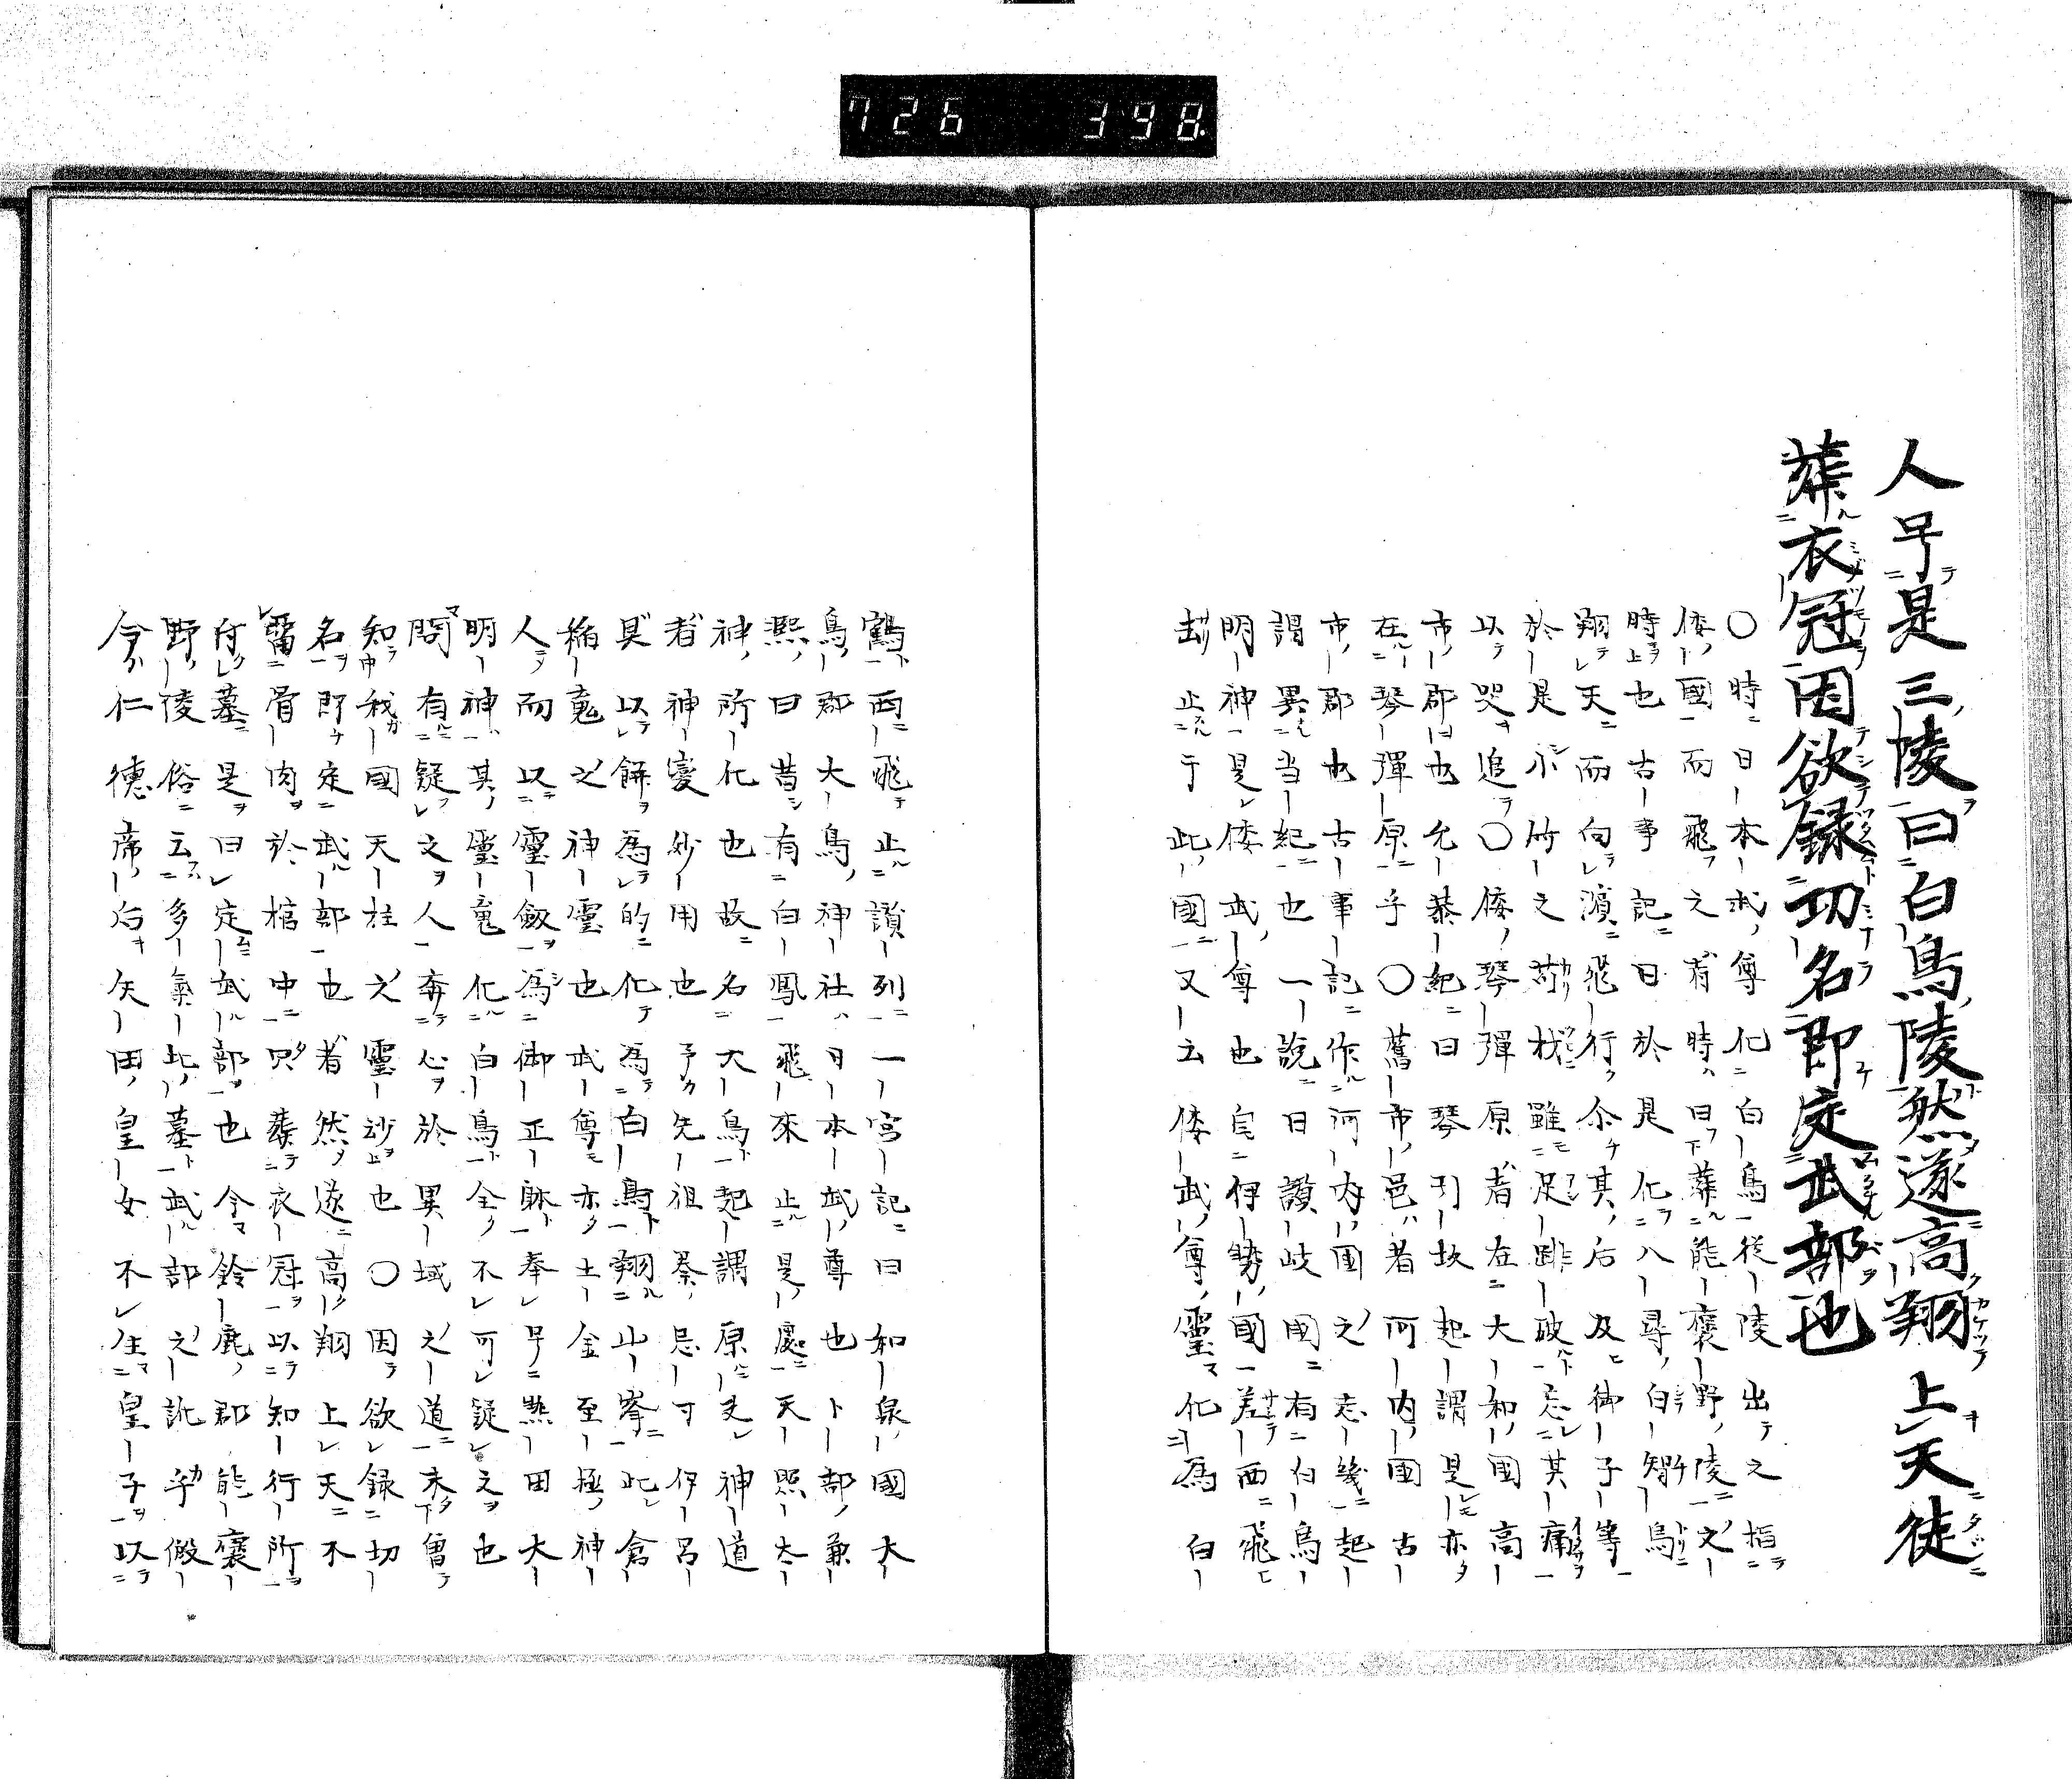 726 398
人号是三陵曰白鳥陵然遂高翔上天徒
葬衣冠因欲録功名即定武部也
〇時日本武尊化白鳥従陵出之指
倭國而飛之者時曰葬能褒野陵之
時也古事記曰於是化八尋白智鳥
翔天而向濱飛行尒其后及御子等
於是小竹之苅杙雖足䠊破忘其痛
以哭追〇倭琴弾原者在大和國高
市郡也允恭紀曰琴引坂起謂是亦
在琴弾原乎〇舊市邑者河内國古
市郡也古事記作河内國之志幾起
謂異当紀也一説曰讃岐國有白鳥
明神是倭武尊也自伊勢國差西飛
去止于此國又云倭武尊霊化為白
鶴西飛止讃列一宮記曰和泉國大
鳥郡大鳥神社日本武尊也卜部兼
熈曰昔有白鳳飛來止是處天照太
神所化也故名大鳥起謂原夫神道
者神変妙用也予先祖秦忌寸伊呂
具以餅為的化為白鳥翔山峯此倉
稲䰟之神霊也武尊亦土金至極神
人而以霊劔為御正躰奉号熱田大
明神其霊䰟化白鳥全不可疑之也
問有疑之人奔心於異域之道未曽
知我國天柱之霊妙也〇因欲録切
名即定武部也者然遂高翔上天不
留骨肉於棺中只葬衣冠以知行所
付墓是曰定武部也今鈴鹿郡能褒
野陵俗云多氣此墓武部之訛乎假
令仁徳帝后矢田皇女不生皇子以